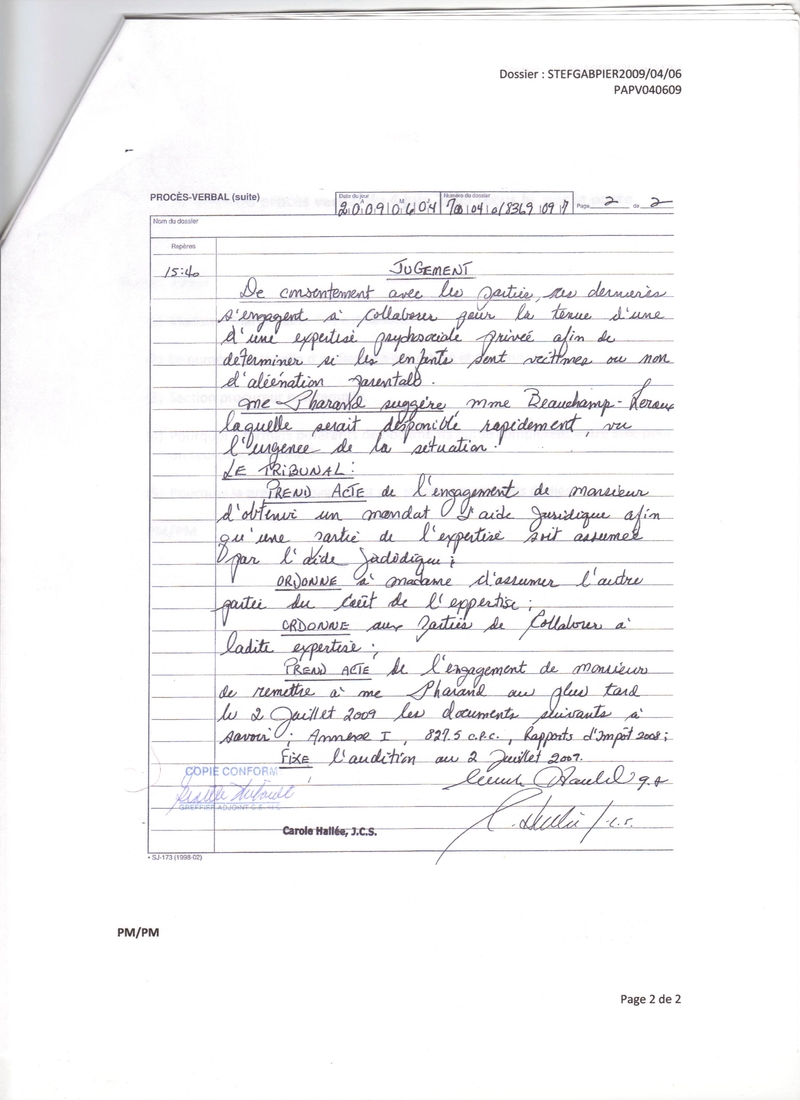 Dossier : STEFGABPIER2009/04/06
PAPV040609
PROCÈS-VERBAL (suite)
Date du jour
Numéro du dossier
Page 2 de 2
Nom du dossier
Repères
15:40
JUGEMENT
De consentement avec les parties, ces dernières
s'engagent à collaborer pour la tenue d'une
d'une expertise psychosociale privée afin de
determiner si les enfants sont victimes ou non
d'aliénation parentale.
me Pharand suggère mme Beauchamp-Leroux
laquelle serait disponible rapidement, vu
l'urgence de la situation.
LE TRIBUNAL:
PREND ACTE de l'engagement de monsieur
d'obtenir un mandat d'aide juridique afin
qu'une partie de l'expertise soit assumée
par l'aide juridique;
ORDONNE à madame d'assumer l'autre
partie du coût de l'expertise;
ORDONNE aux parties de collaborer à
ladite expertise;
PREND ACTE de l'engagement de monsieur
de remettre à me Pharand au plus tard
le 2 Juillet 2009 les documents suivants à
savoir; Annexe I, 827.5 c.p.c., Rapports d'Impôt 2008;
FIXE l'audition au 2 Juillet 2009.
COPIE CONFORM
GREFFIER ADJOINT
Carole Hallée, J.C.S.
• SJ-173 (1998-02)
PM/PM
Page 2 de 2